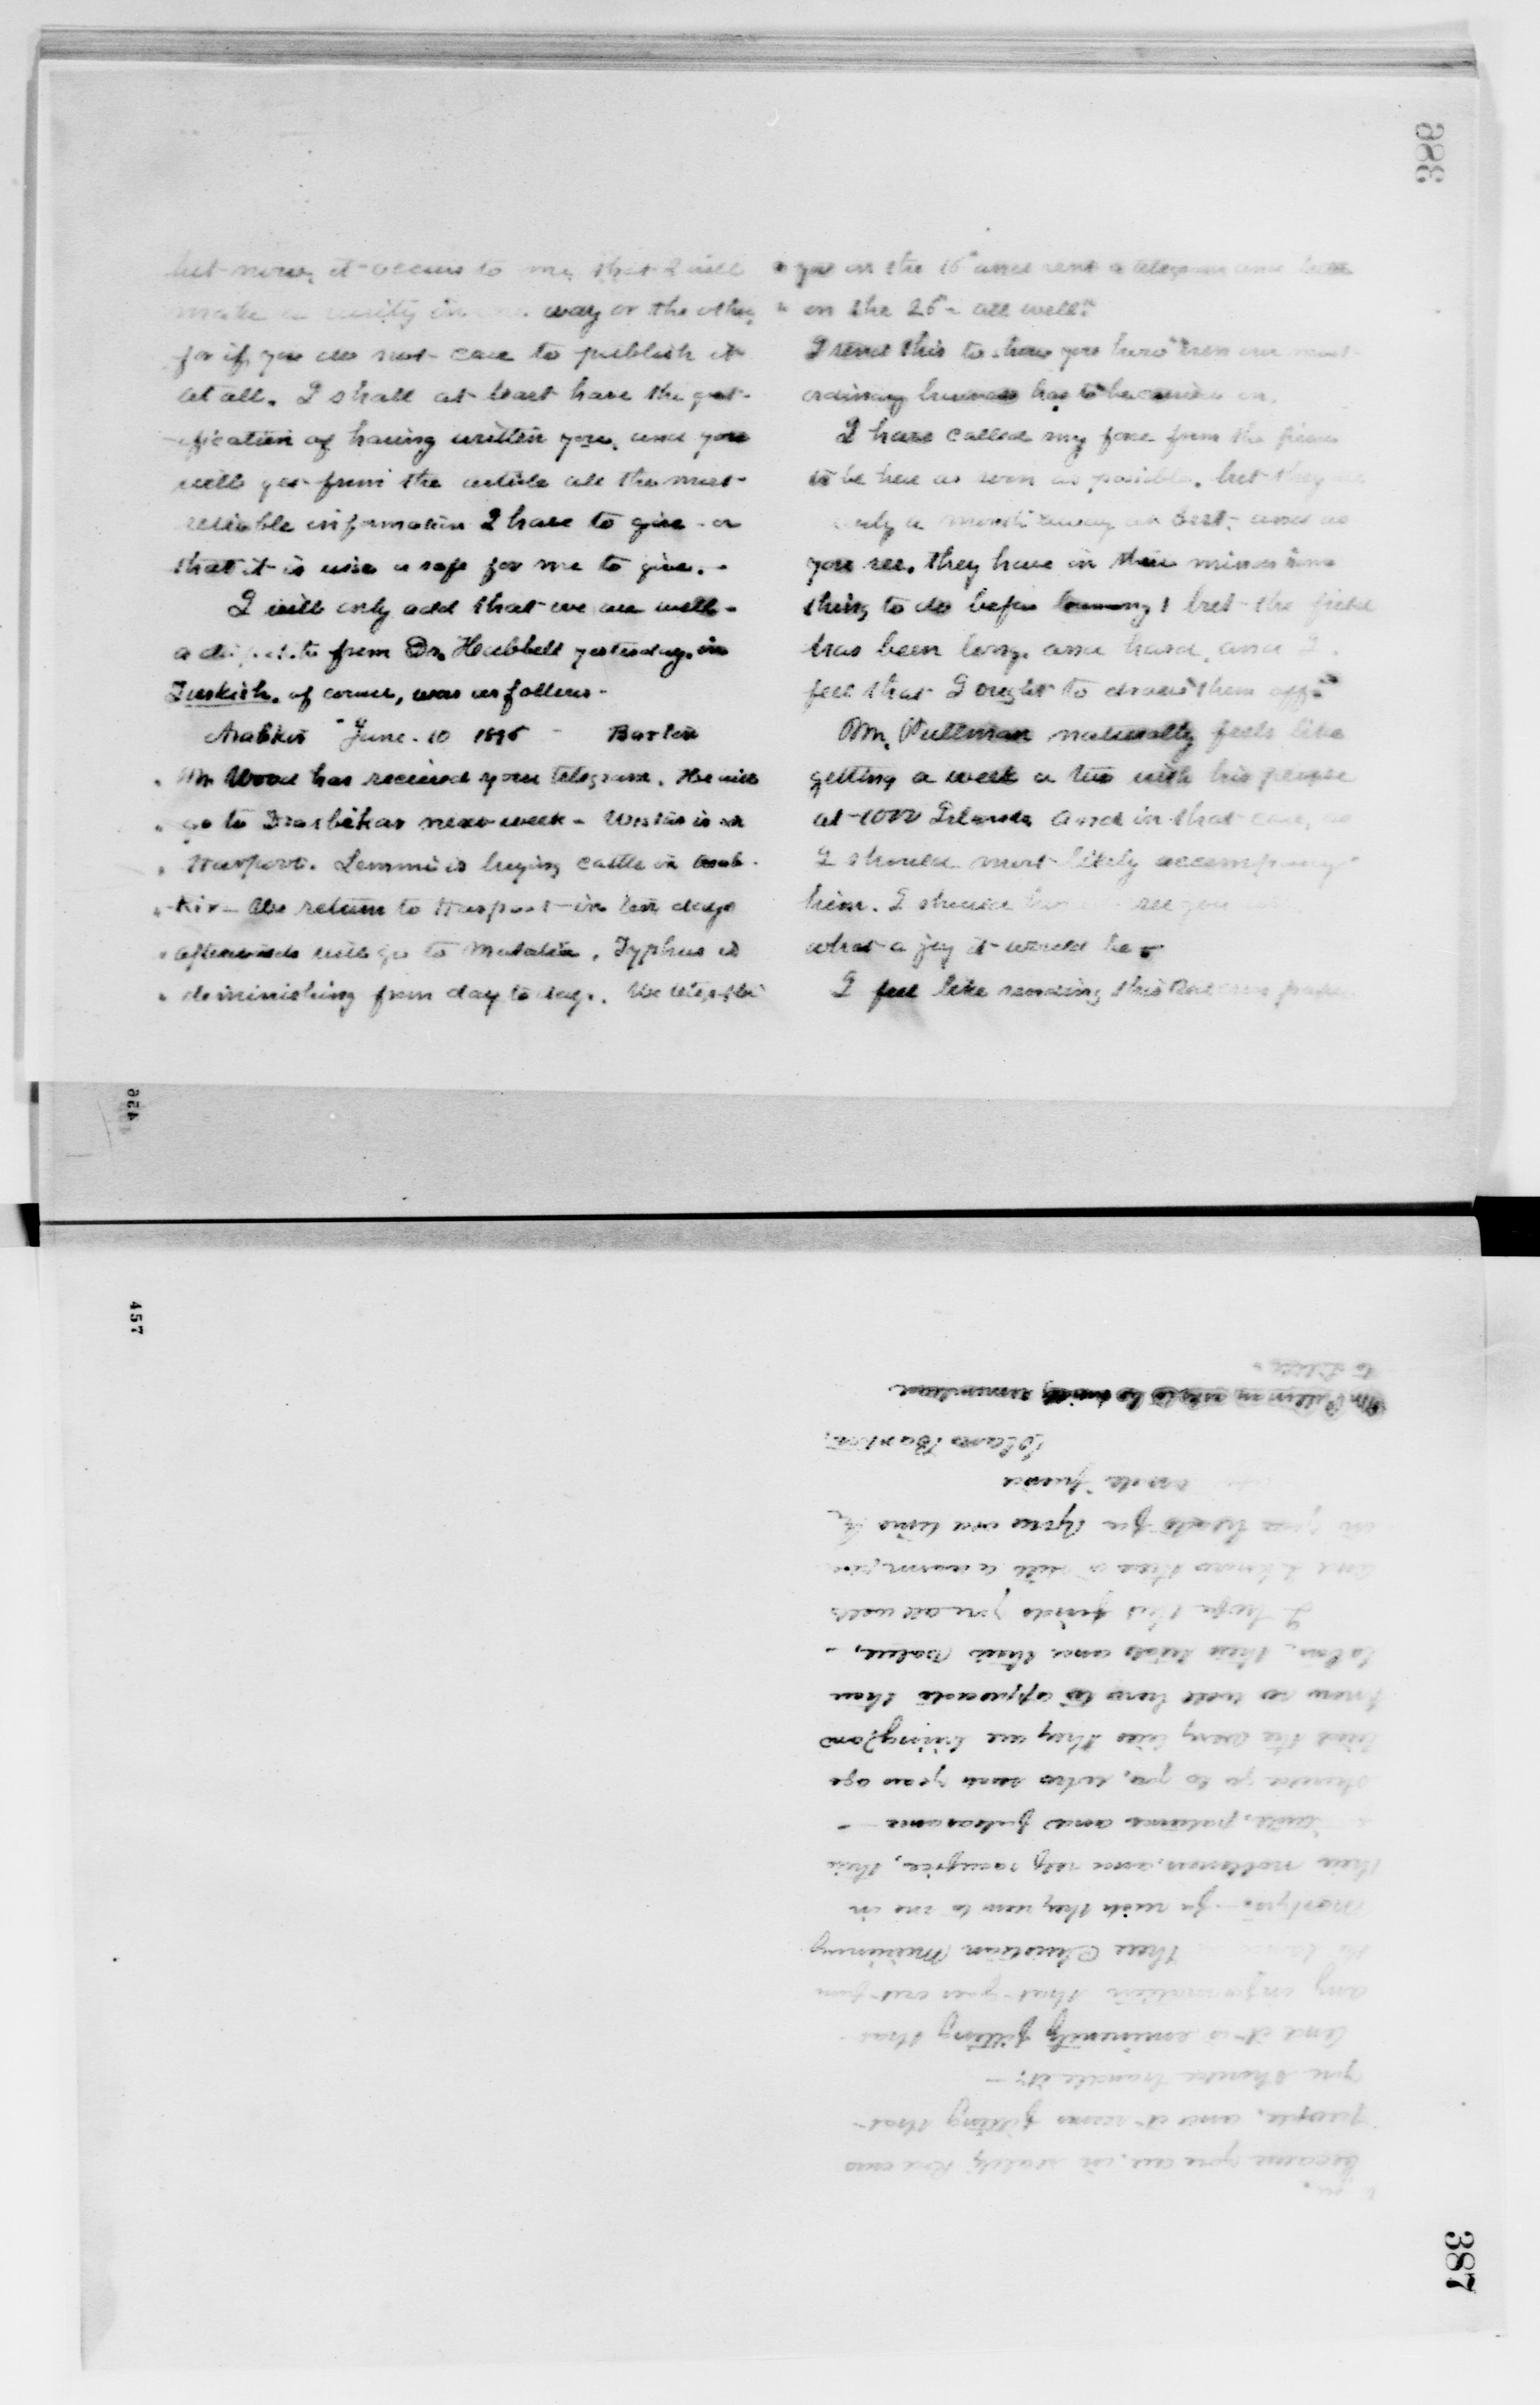 386
but now, it occurs to me, that I will
make a unity in one way or the other,
for if you do not care to publish it
at all. I shall at least have the grat-
-ification of having written you, and you
will get from the article all the most
reliable information I have to give - or
that it is wise or safe for me to give. -
I will only add that we are well -
a dispatch from Dr. Hubbell yesterday, in
Turkish, of course, was as follows -
Arabkir "June 10 1896 - Barton
" Mr Wood has received your telegram. He will
" go to Diarbekar next week - Wistar is in
" Harpoot. Lemmi is buying cattle in Arab-
" -kir - We return to Harpoot in ten days
" afterwards will go to Malatia. Typhus is
" deminishing from day to day.
" you on the 16" and sent a telegram and letter
" on the 26" - all well."
I send this to show you how even our most
ordinary business has to be carried on.
I have called my force from the field
to be here as soon as possible, but they are
only a month away at best, and as
you see, they have in their minds some
thing to do before coming, but the field
has been long, and hard, and I
feel that I ought to draw them off.
Mr. Pullman naturally feels like
getting a week or two with his people
at 1000 Islands and in that case, as
I should most likely accompany
him. I should see you
what a joy it would be -
I feel like sending this Red Cross paper
456
457
to you.
because you are, in reality Red Cross
people, and it seems fitting that
you should handle it; -
And it is eminently fitting that
any information that goes out from
the hands of these Christian Missionary
Martyrs - for such they seem to me in
their nobleness, and self sacrifice, their
faith, patience and forbearance -
should go to you, who some years ago
lived the very lives they are living, and
know so well how to appreciate their
labors, their trials and their value, -
I hope this finds you all well
and I know there is still a warm place
in your hearts for your old time &
friend
Clara Barton.
Mr. Pullman asks to be kindly remembered
to
387